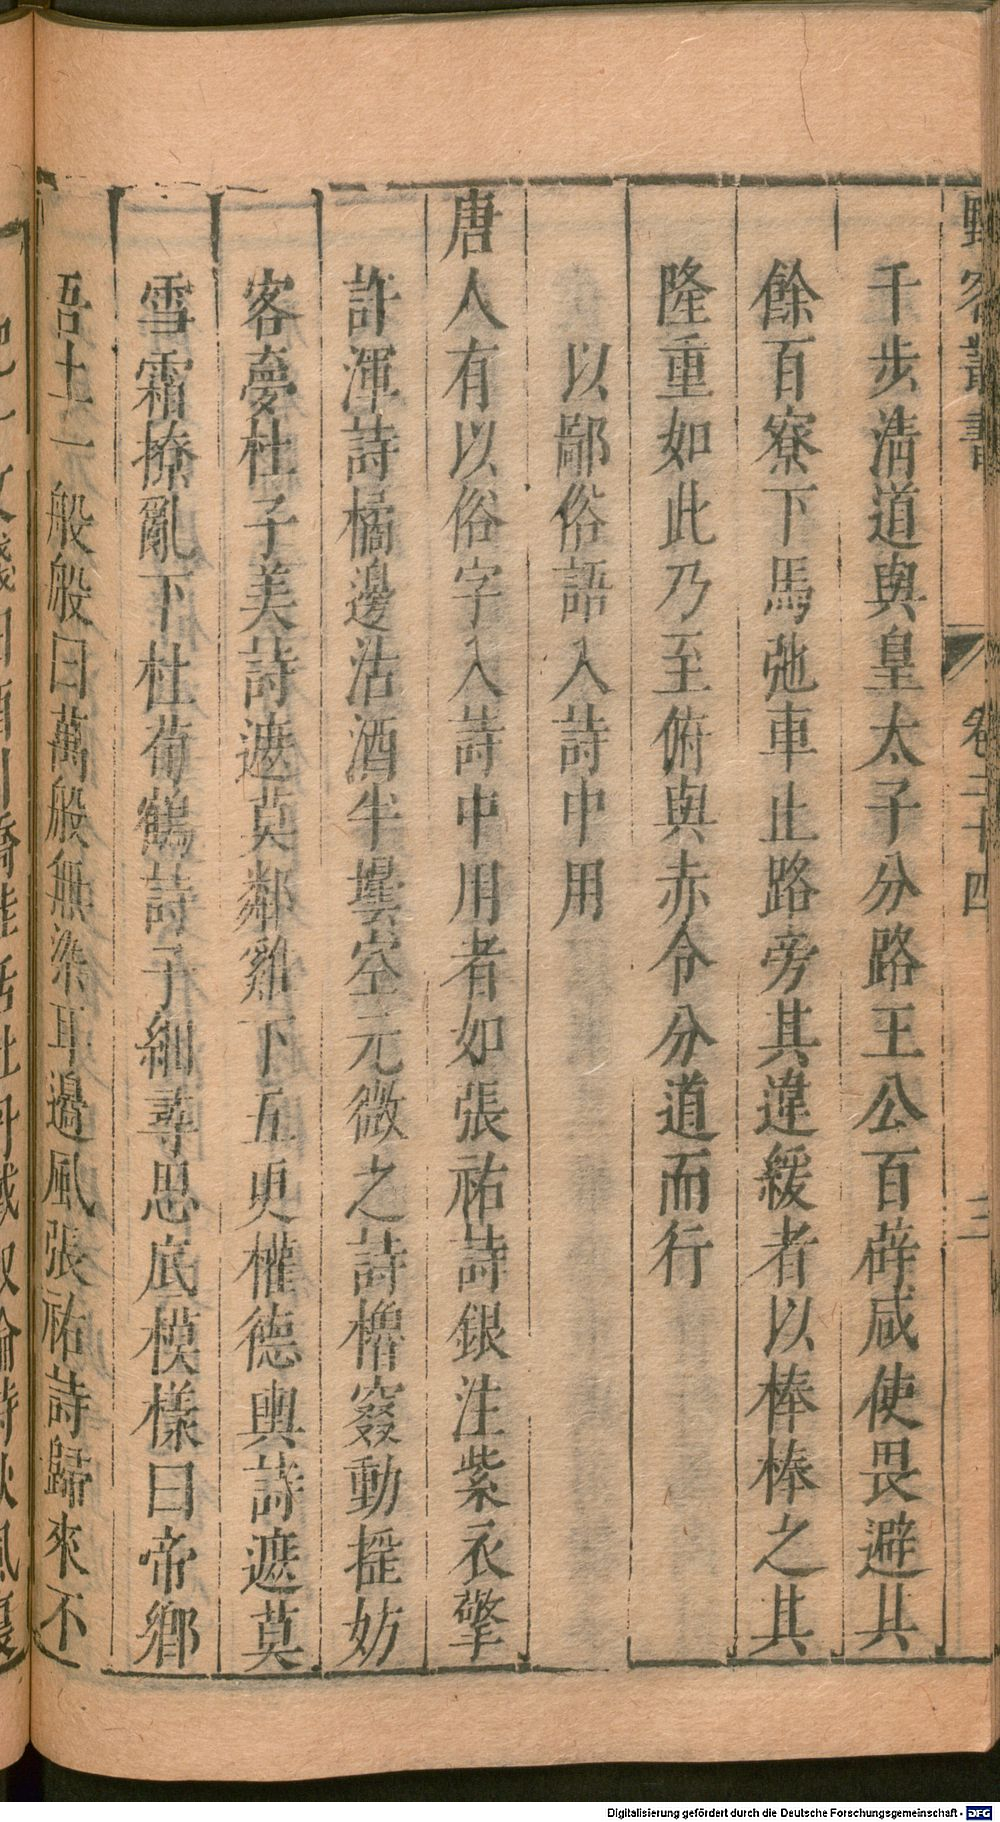 野客叢書 卷二十四 三
千步清道與皇太子分路王公百辟咸使畏避其
餘百寮下馬弛車止路旁其違緩者以棒棒之其
隆重如此乃至俯與赤令分道而行
以鄙俗語入詩中用
唐人有以俗字入詩中用者如張祐詩銀注紫衣擎
許渾詩橘邊沽酒半壜空元微之詩櫓窡動搖妨
客夢杜子美詩遮莫鄰雞下五更權德輿詩遮莫
雪霜撩亂下杜荀鶴詩子細尋思底模樣曰帝鄉
吾土一般般曰萬般無染耳邊風張祐詩歸來不
Digitalisierung gefördert durch die Deutsche Forschungsgemeinschaft - DFG